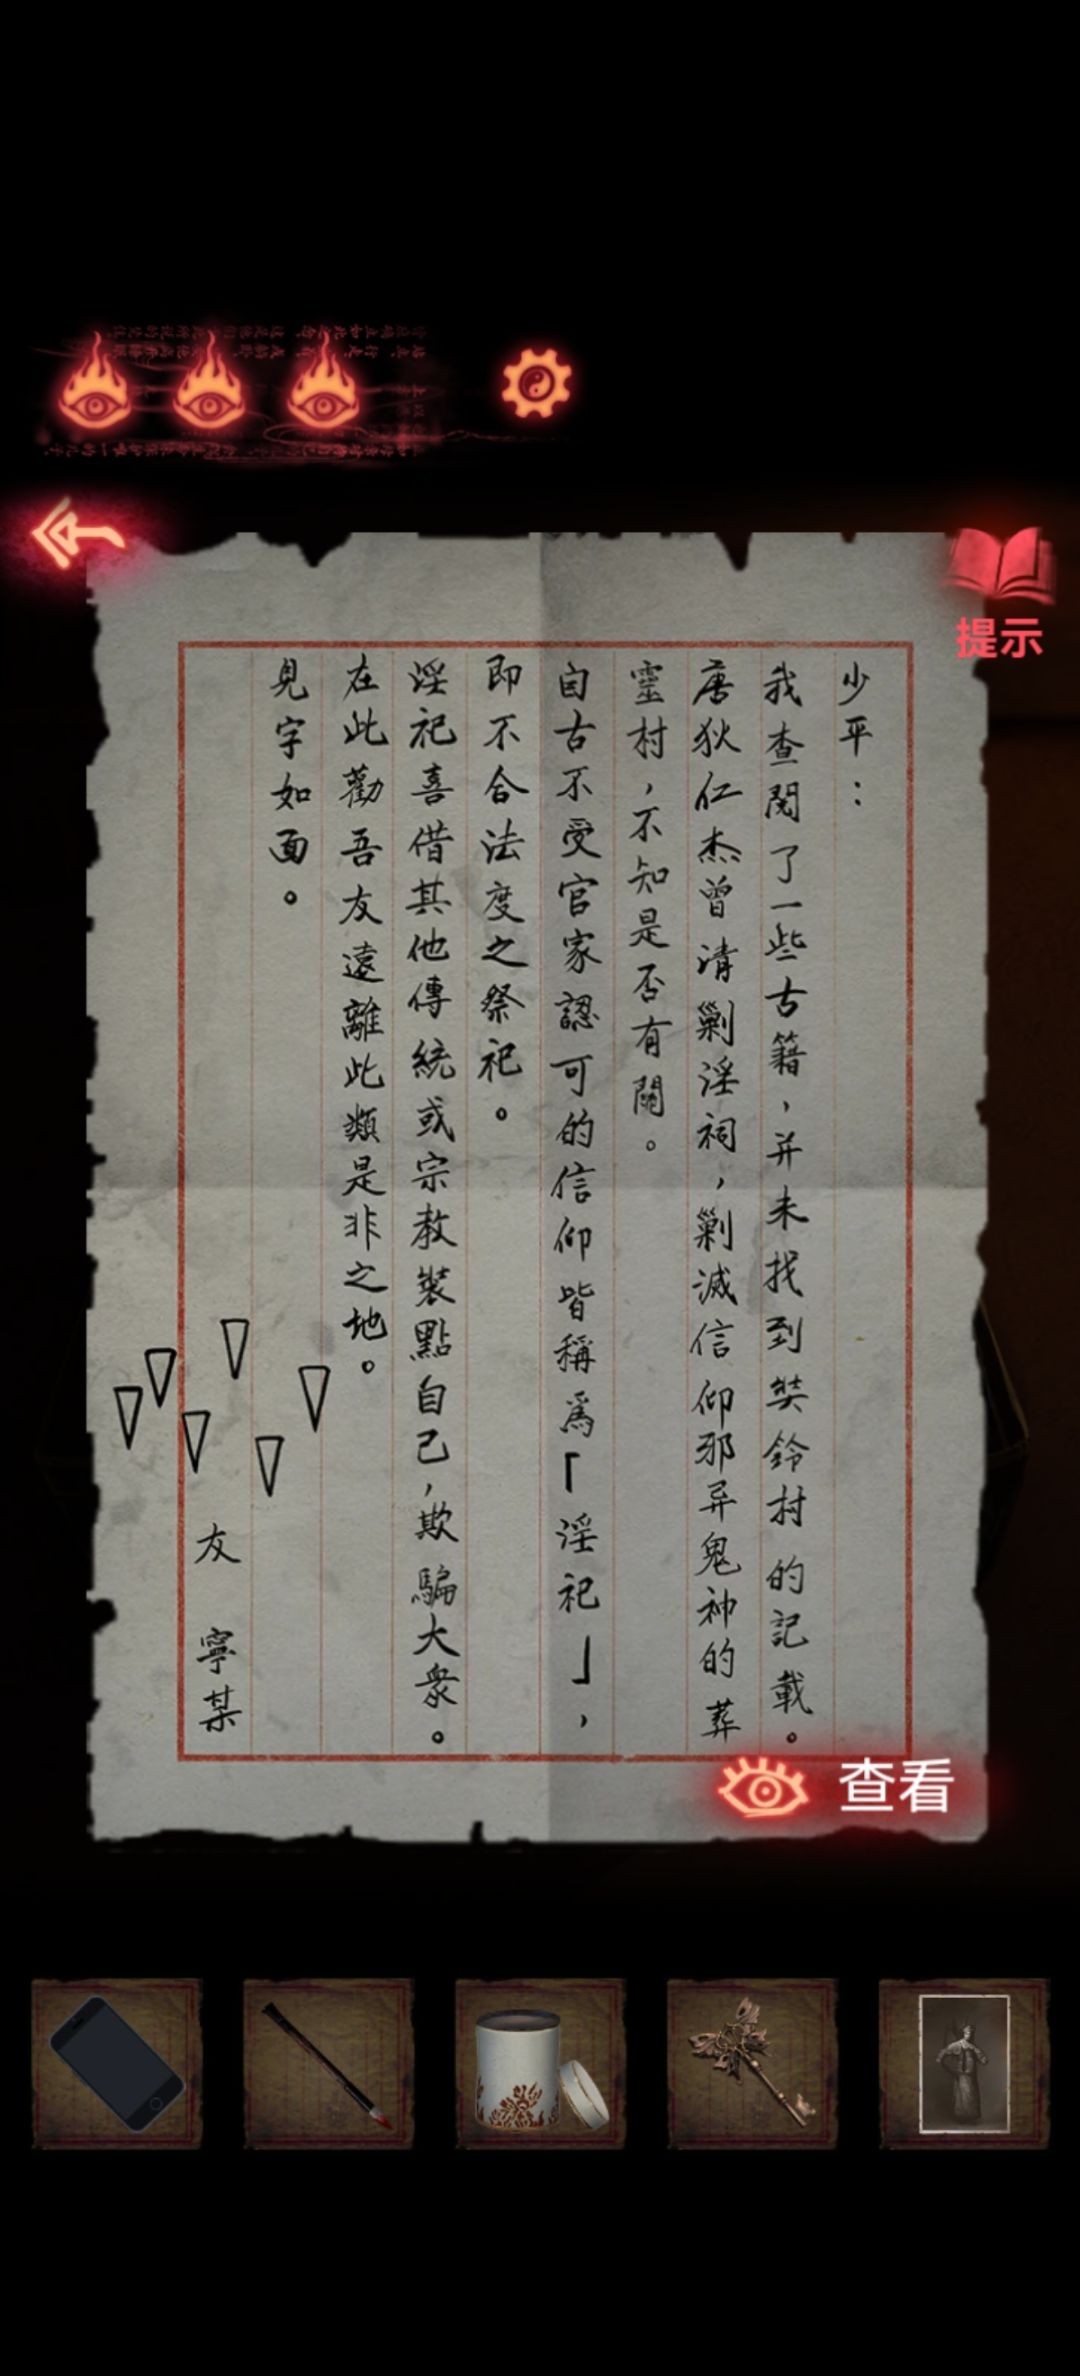 提示
少平：
我查閱了一些古籍，并未找到奘鈴村的記載。
唐狄仁杰曾清剿淫祠，剿滅信仰邪异鬼神的葬
靈村，不知是否有關。
自古不受官家認可的信仰皆稱爲「淫祀」，
即不合法度之祭祀。
淫祀喜借其他傳統或宗教裝點自己，欺騙大衆。
在此勸吾友遠離此類是非之地。
見字如面。
友 寧某
查看